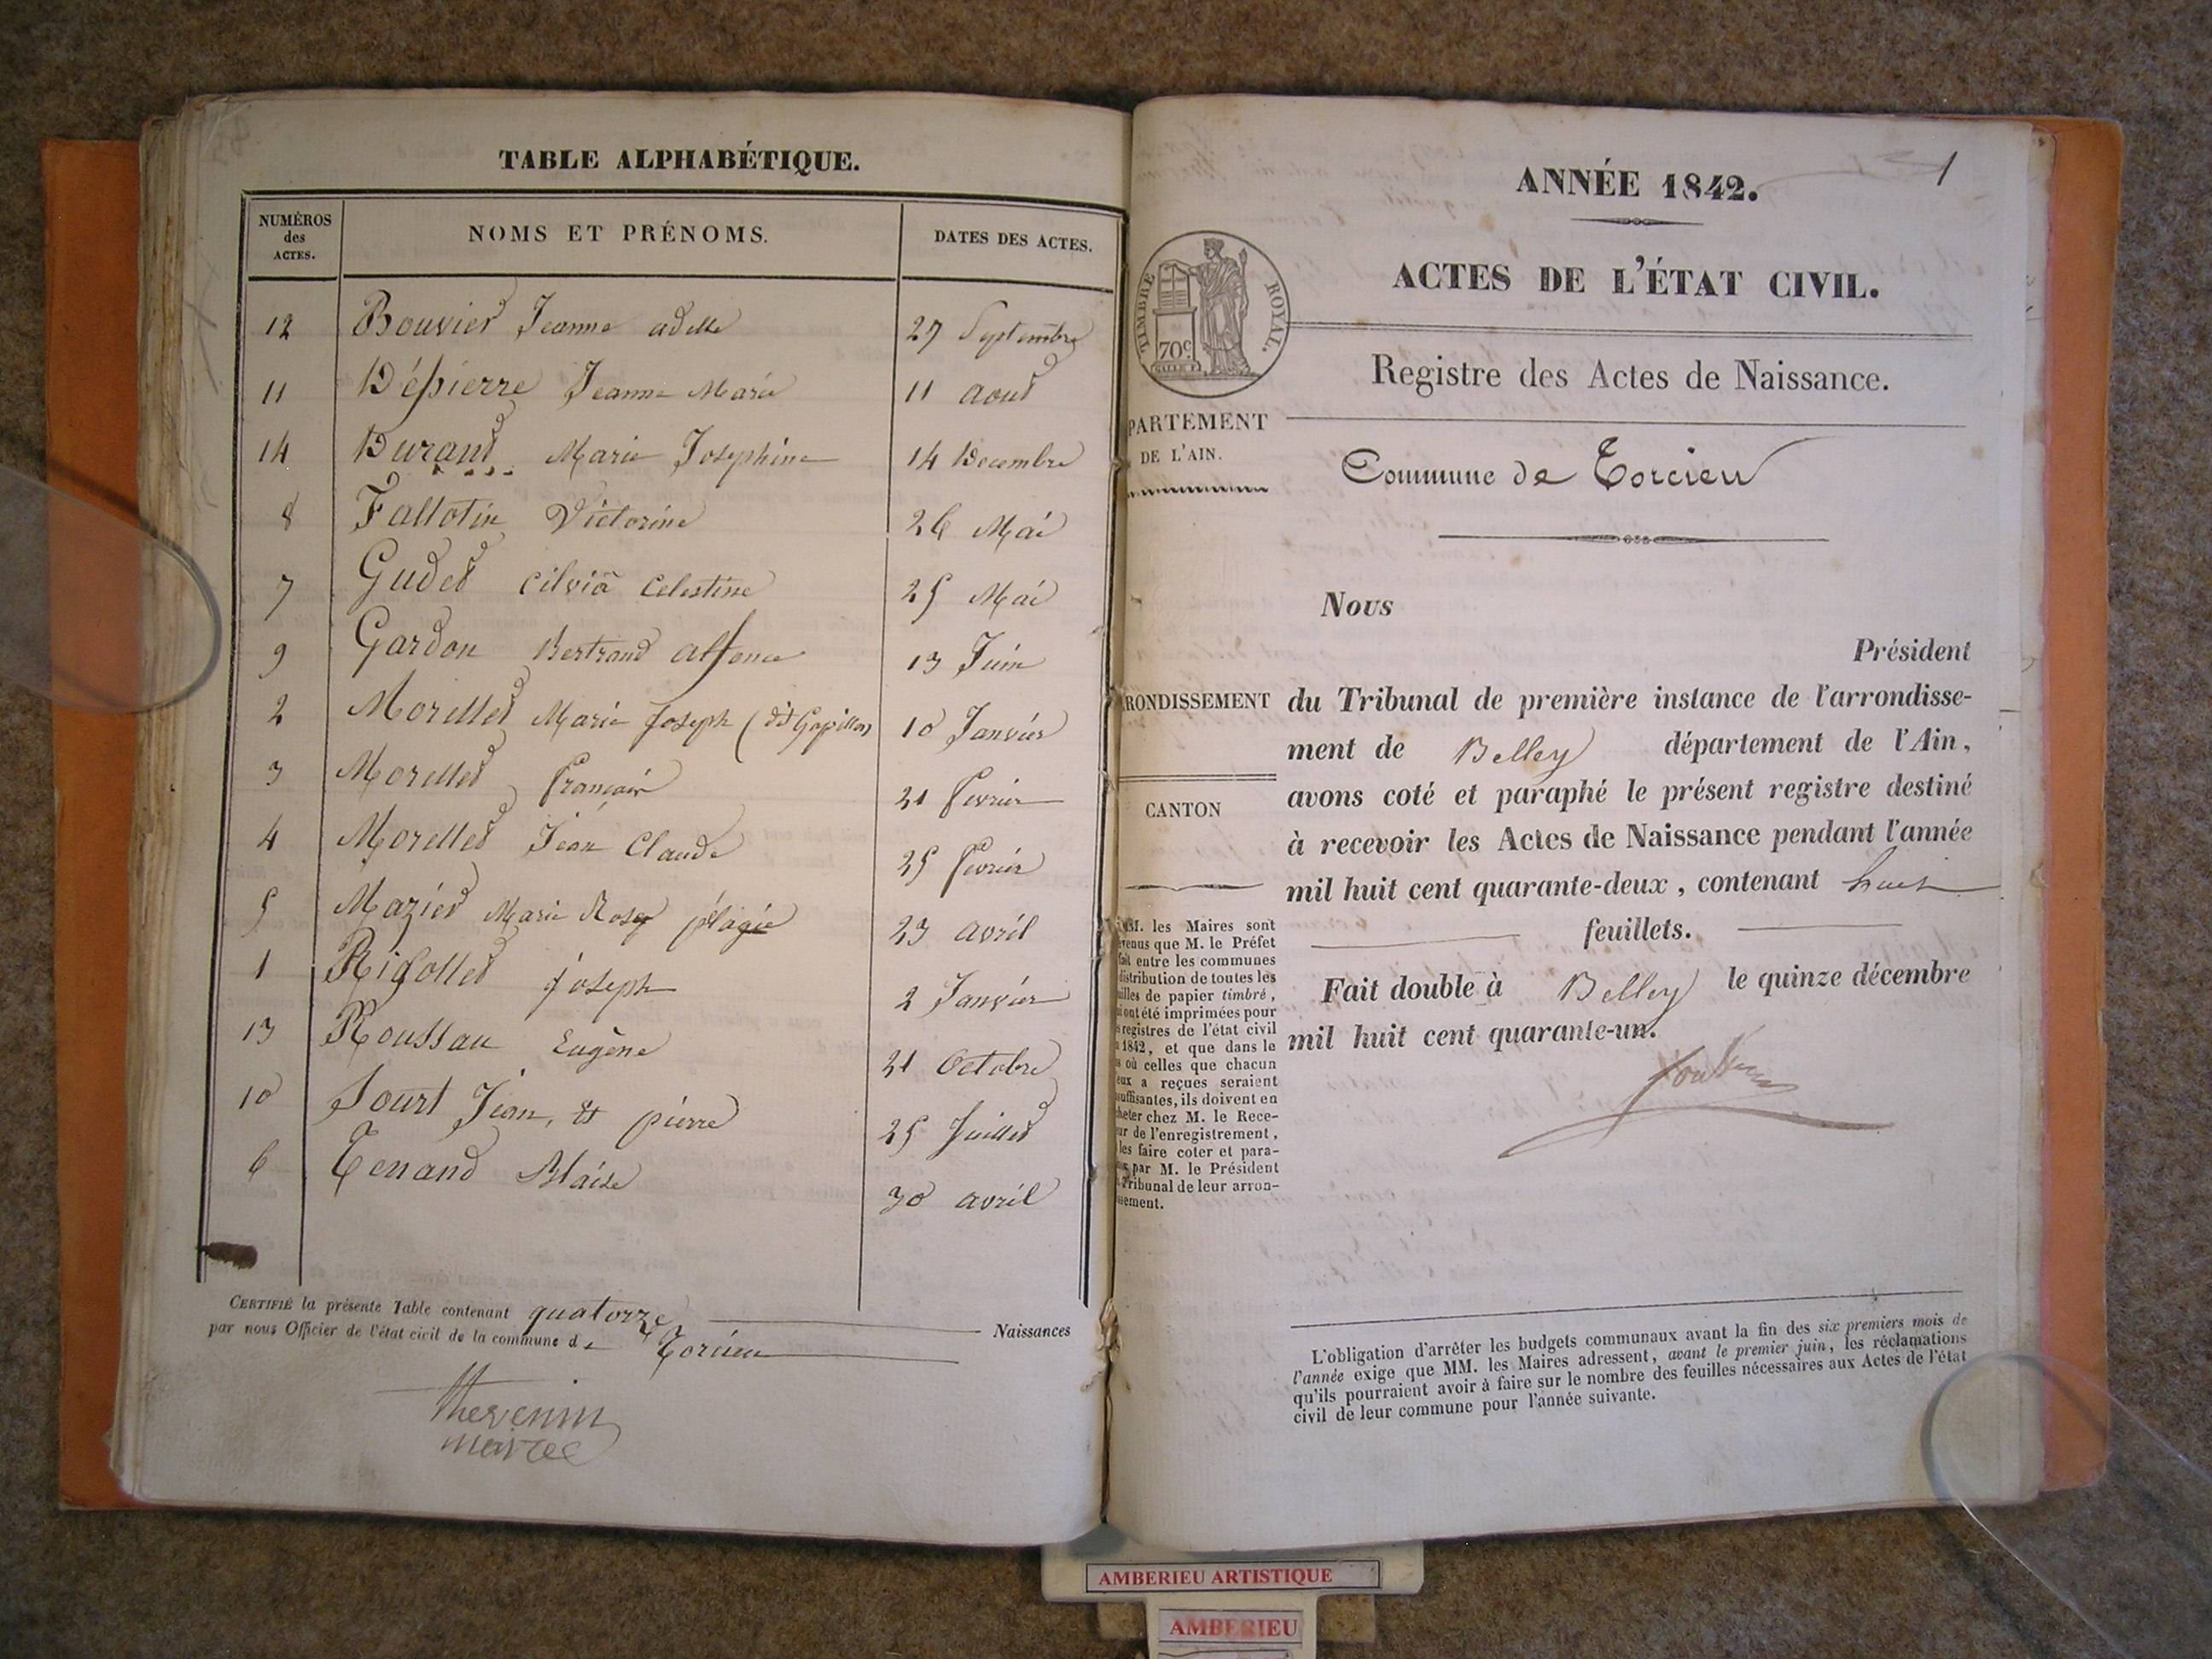 TABLE ALPHABÉTIQUE.
NUMÉROS des ACTES. NOMS ET PRÉNOMS. DATES DES ACTES.
12 Bouvier Jeanne adelle 27 Septembre
11 Dépierre Jeanne Marie 11 aout
14 Durand Marie Josephine 14 Decembre
8 Fallotin Victorine 26 Mai
7 Gudet cilvia Celestine 25 Mai
9 Gardon Bertrand alfonce 13 Juin
2 Morellet Marie Joseph (dit Gapillon) 10 Janvier
3 Morellet françois 21 fevrier
4 Morellet Jean Claude 25 fevrier
5 Mazier Marie Rose plagie 23 avril
1 Rigollet joseph 2 Janvier
13 Roussau Eugène 21 Octobre
10 Sourt Jean, et pierre 25 Juillet
6 Tenand Blaise 30 avril
CERTIFIÉ la présente Table contenant quatorze Naissances
par nous Officier de l'état civil de la commune de Torcieu
thevenin
mairee
1
ANNÉE 1842.
ACTES DE L'ÉTAT CIVIL.
TIMBRE ROYAL.
70c
Registre des Actes de Naissance.
PARTEMENT
DE L'AIN.
Commune de Torcieu
Nous
Président
RONDISSEMENT
du Tribunal de première instance de l'arrondisse-
ment de Belley département de l'Ain,
avons coté et paraphé le présent registre destiné
CANTON
à recevoir les Actes de Naissance pendant l'année
mil huit cent quarante-deux, contenant huit
feuillets.
Fait double à Belley le quinze décembre
mil huit cent quarante-un.
MM. les Maires sont
venus que M. le Préfet
fait entre les communes
distribution de toutes les
uilles de papier timbré,
i ont été imprimées pour
s registres de l'état civil
1842, et que dans le
s où celles que chacun
eux a reçues seraient
suffisantes, ils doivent en
heter chez M. le Rece-
ur de l'enregistrement,
les faire coter et para-
par M. le Président
Tribunal de leur arron-
ssement.
L'obligation d'arrêter les budgets communaux avant la fin des six premiers mois de
l'année exige que MM. les Maires adressent, avant le premier juin, les réclamations
qu'ils pourraient avoir à faire sur le nombre des feuilles nécessaires aux Actes de l'état
civil de leur commune pour l'année suivante.
AMBERIEU ARTISTIQUE
AMBERIEU